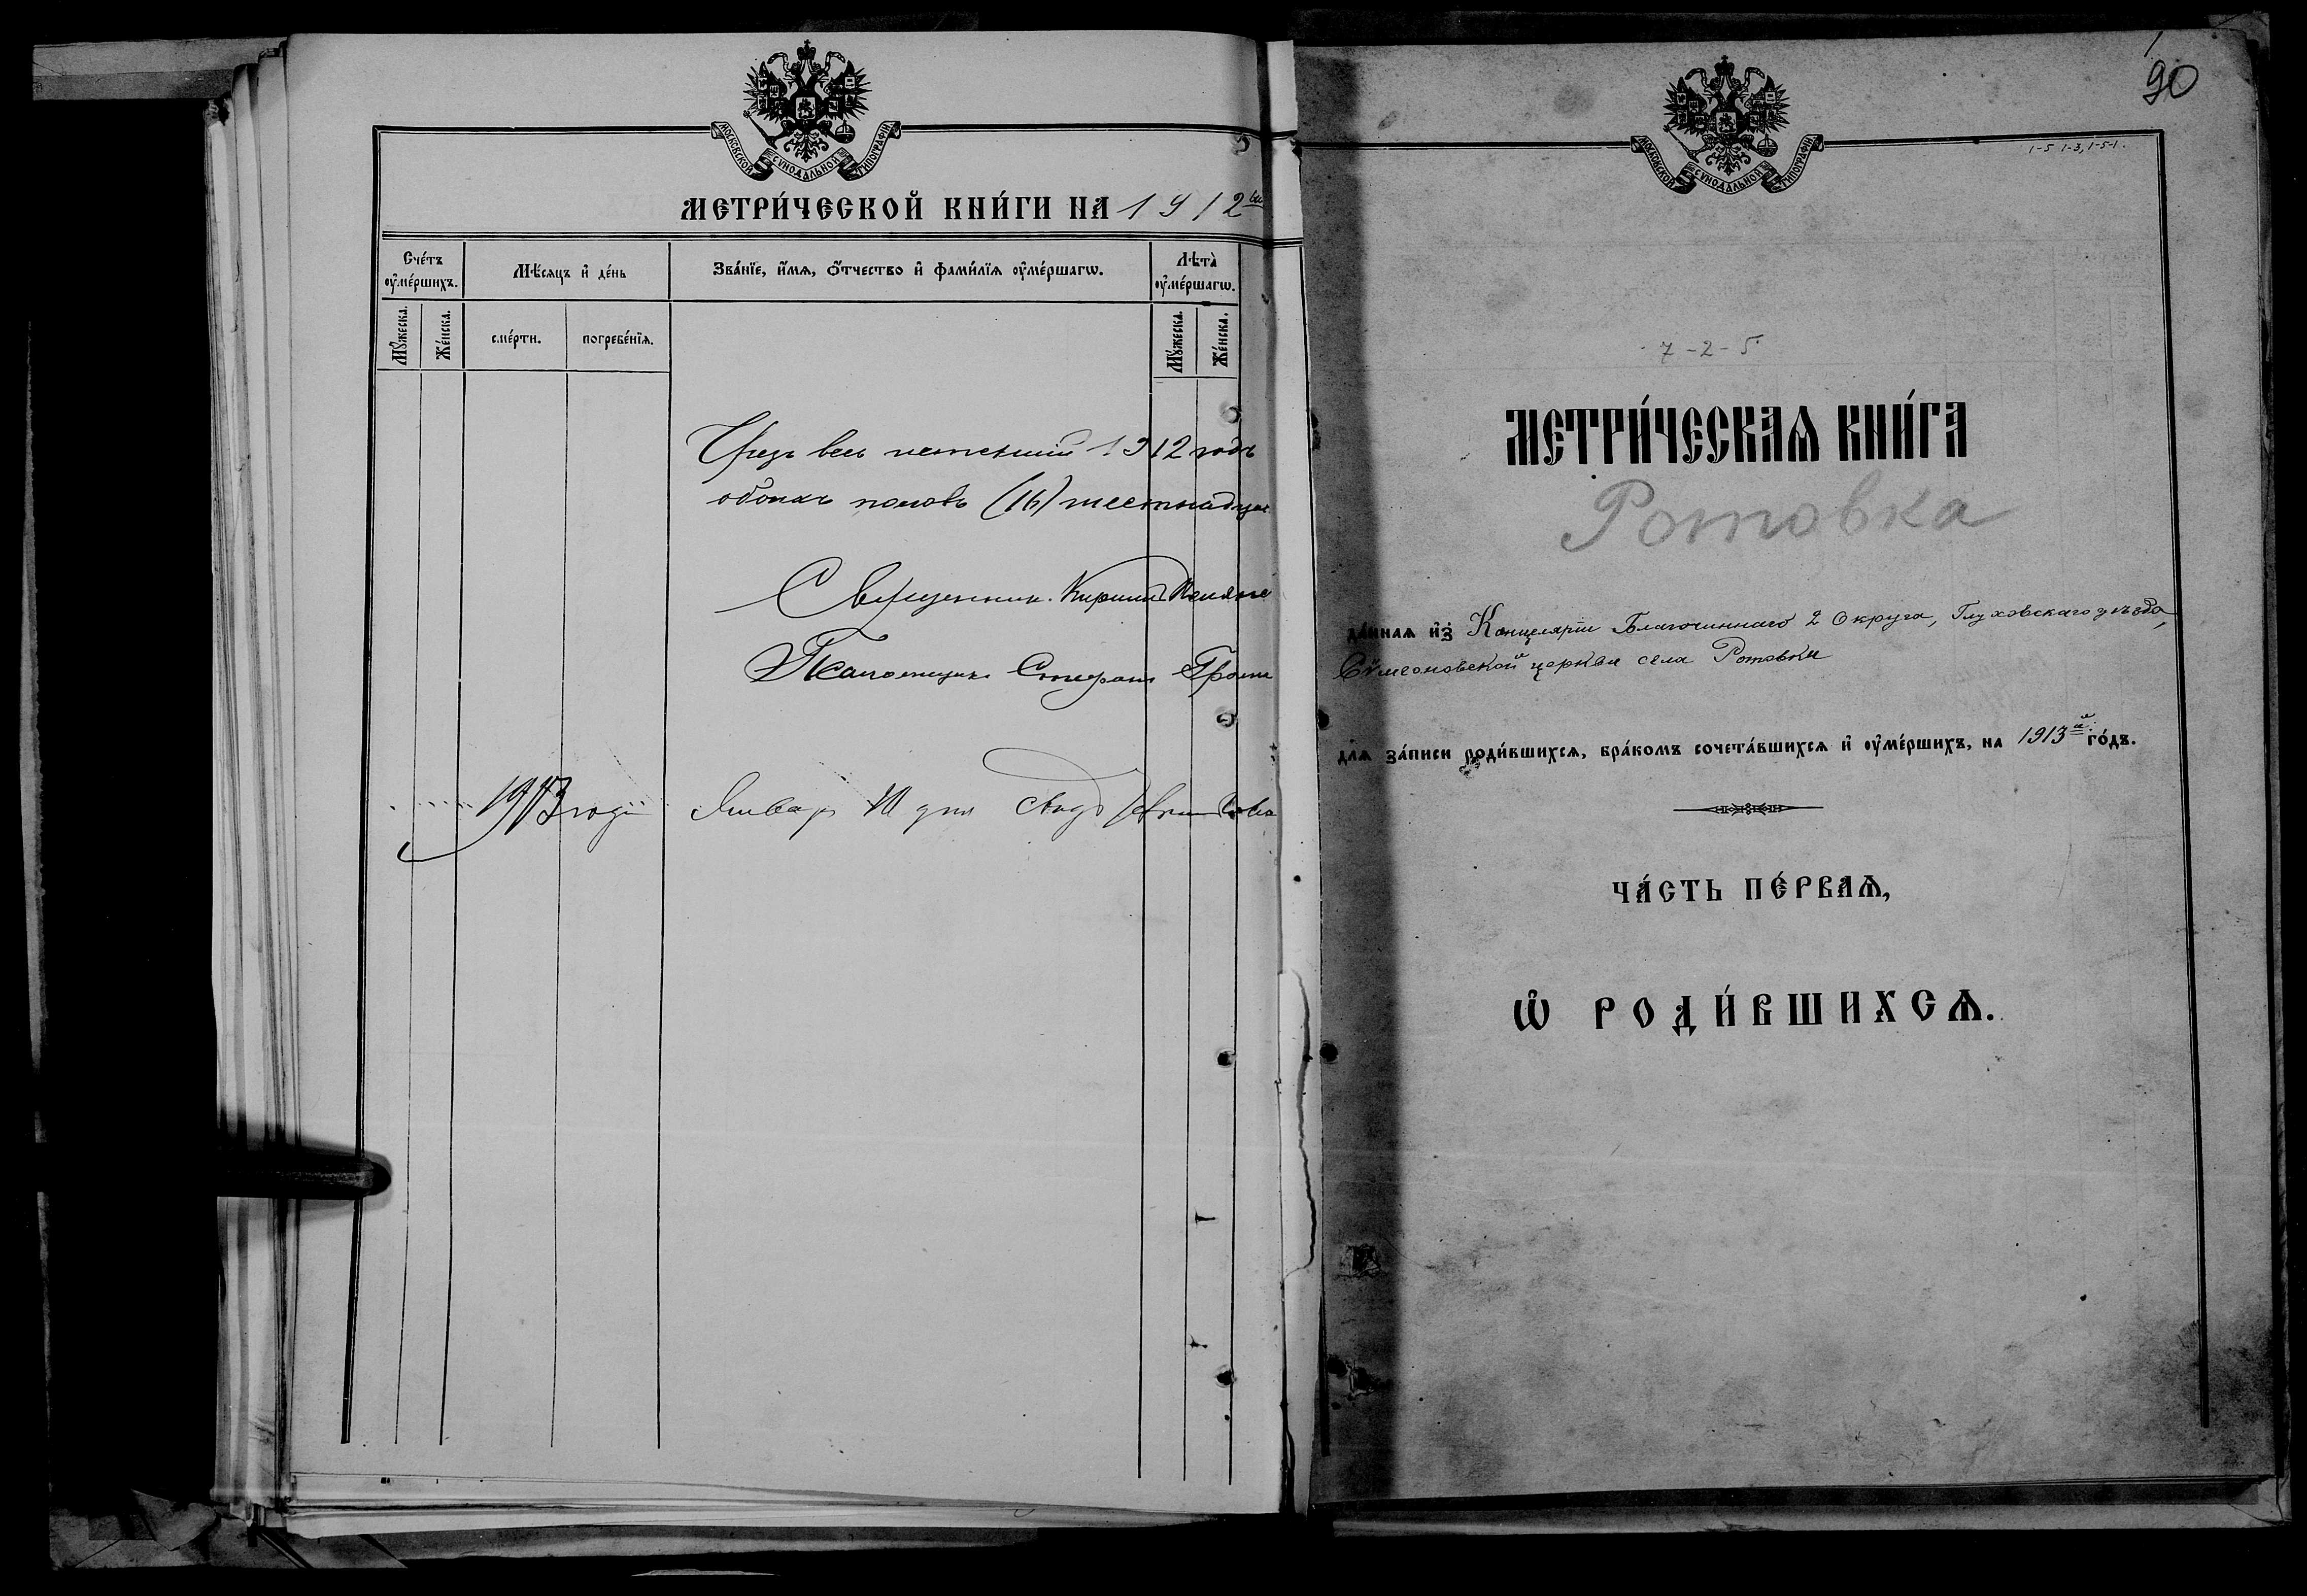 МОСКОВСКОЙ СѴНОДАЛЬНОЙ ТИПОГРАФІИ
МЕТРИ́ЧЕСКОЙ КНИ́ГИ НА 1912ый
Сче́тъ ᲂу҆ме́ршихъ.
Мѣ́сяцъ и҆ де́нь
Зва́нїе, и҆́мѧ, ѻ҆́тчество и҆ фами́лїѧ ᲂу҆ме́ршагѡ.
Лѣта̀ ᲂу҆ме́ршагѡ.
Мꙋ́жеска.
Же́нска.
сме́рти.
погребе́нїѧ.
Мꙋ́жеска.
Же́нска.
Чрезъ весь истекшій 1912 годъ
обоихъ половъ (16) шестнадца
Священникъ Кириллъ
Псаломщикъ Стефанъ
1913 года Январ дня
90
МОСКОВСКОЙ СѴНОДАЛЬНОЙ ТИПОГРАФІИ
1-5 1-3, 1-5-1.
7-2-5
МЕТРИ́ЧЕСКАѦ КНИ́ГА
Ротовка
да́ннаѧ и҆з̾ Канцеляріи Благочиннаго 2 Округа, Глуховскаго уѣзда,
Сѵмеоновской церкви села Ротовки
длѧ за́писи роди́вшихсѧ, бра́комъ сочета́вшихсѧ и҆ ᲂу҆ме́ршихъ, на 1913й го́дъ.
ЧА́СТЬ ПЕ́РВАѦ,
Ѽ РОДИ́ВШИХСѦ.